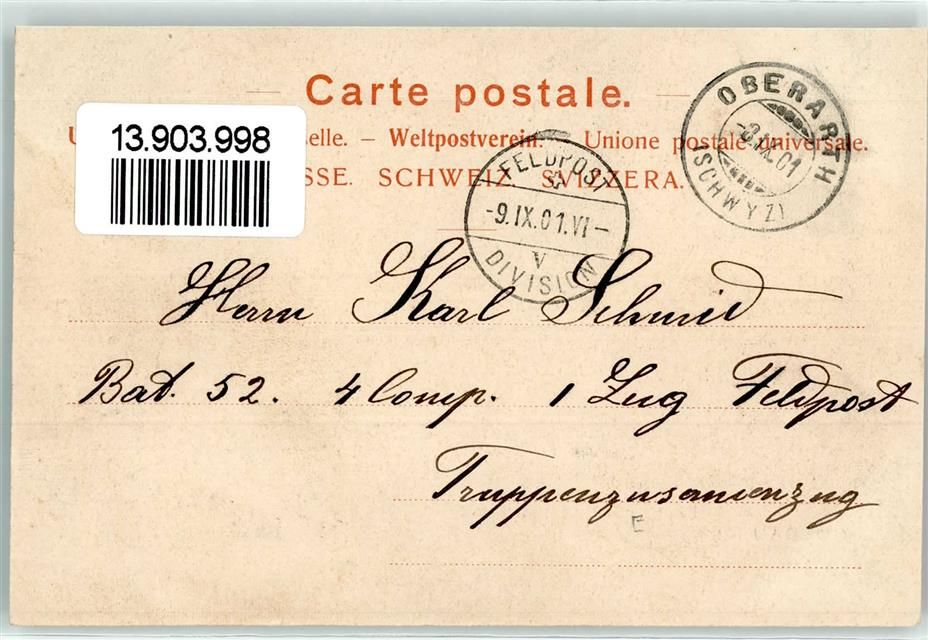 Carte postale.
13.903.998
U elle. – Weltpostverein. – Unione postale universale.
SSE. SCHWEIZ. SVIZZERA.
OBERARTH
-8.IX.01
(SCHWYZ)
FELDPOST
-9.IX.01.VI-
V
DIVISION
Herrn Karl Schmid
Bat. 52. 4 Comp. 1 Zug Feldpost
Truppenzusamenzug
E